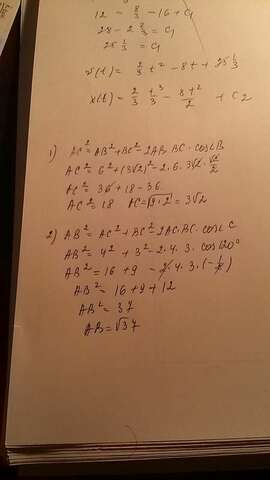 12 = 8/3 - 16 + C₁
28 - 2 2/3 = C₁
25 1/3 = C₁
v(t) = 2/3 t² - 8t + 25 1/3
x(t) = 2/3 t³/3 - 8t²/2 + C₂
1) AC² = AB² + BC² - 2AB·BC·cos∠B
AC² = 6² + (3√2)² - 2·6·3√2·√2/2
AC² = 36 + 18 - 36
AC² = 18 AC = √9·2 = 3√2
2) AB² = AC² + BC² - 2AC·BC·cos∠C
AB² = 4² + 3² - 2·4·3·cos120°
AB² = 16 + 9 - 2·4·3·(-1/2)
AB² = 16 + 9 + 12
AB² = 37
AB = √37